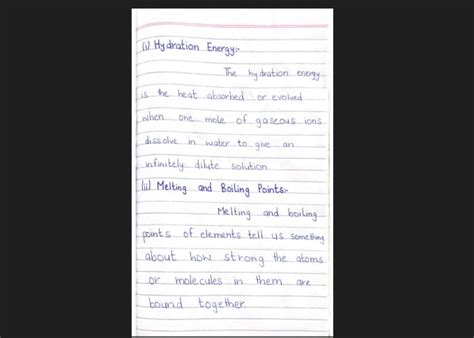 (i) Hydration Energy:-
The hydration energy
is the heat absorbed or evolved
when one mole of gaseous ions
dissolve in water to give an
infinitely dilute solution
(ii) Melting and Boiling Points:-
Melting and boiling
points of elements tell us something
about how strong the atoms
or molecules in them are
bound together.